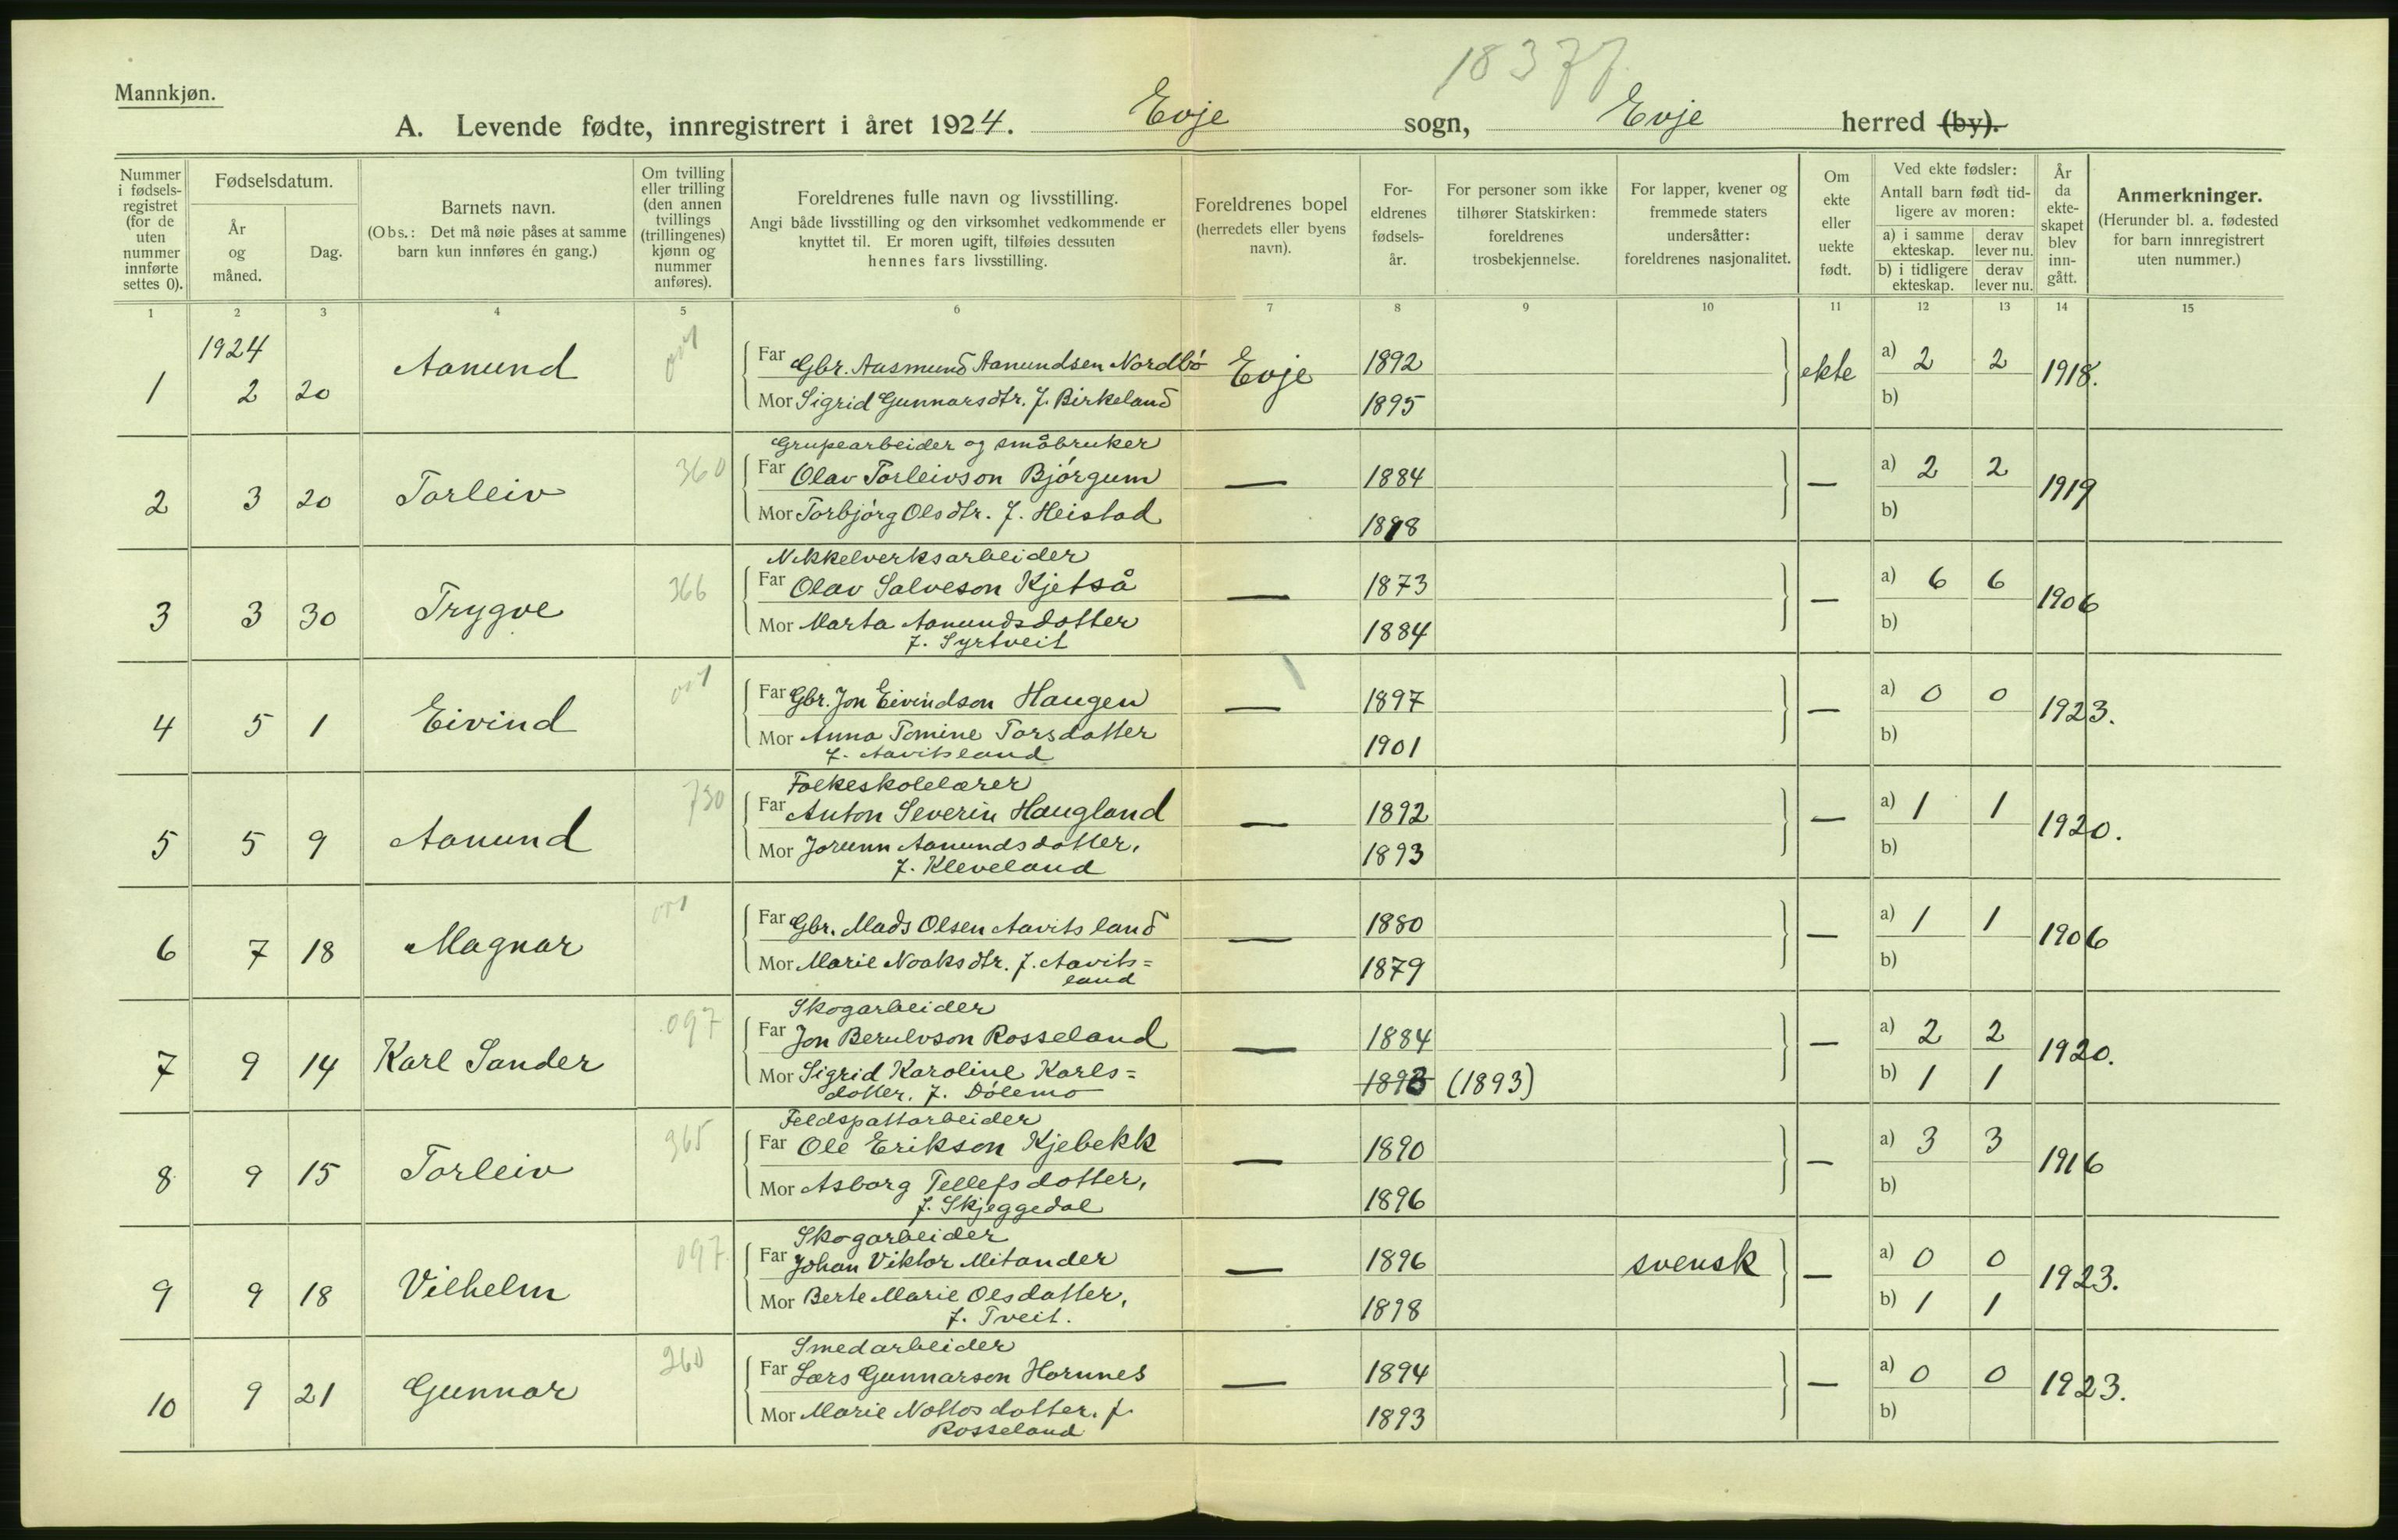 18377
Mannkjøn.
A. Levende fødte, innregistrert i året 1924. Evje sogn, Evje herred (by).
Nummer i fødsels-registret (for de uten nummer innførte settes 0).
Fødselsdatum.
År og måned.
Dag.
Barnets navn.
(Obs.: Det må nøie påses at samme barn kun innføres én gang.)
Om tvilling eller trilling (den annen tvillings (trillingenes) kjønn og nummer anføres).
Foreldrenes fulle navn og livsstilling.
Angi både livsstilling og den virksomhet vedkommende er knyttet til. Er moren ugift, tilføies dessuten hennes fars livsstilling.
Foreldrenes bopel (herredets eller byens navn).
For-eldrenes fødsels-år.
For personer som ikke tilhører Statskirken: foreldrenes trosbekjennelse.
For lapper, kvener og fremmede staters undersåtter: foreldrenes nasjonalitet.
Om ekte eller uekte født.
Ved ekte fødsler:
Antall barn født tid-ligere av moren:
a) i samme ekteskap. derav lever nu.
b) i tidligere ekteskap. derav lever nu.
År da ekte-skapet blev inn-gått.
Anmerkninger.
(Herunder bl. a. fødested for barn innregistrert uten nummer.)
1 2 3 4 5 6 7 8 9 10 11 12 13 14 15
1924
1 2 20 Aanund
Far Gbr. Aasmund Aanundsen Nordbö Evje 1892 ekte a) 2 2 1918.
Mor Sigrid Gunnarsdtr. f. Birkeland 1895 b)
Grupearbeider og småbruker
2 3 20 Torleiv 360
Far Olav Torleivson Bjórgum — 1884 — a) 2 2 1919
Mor Torbjórg Olsdtr. f. Heistad 1898 b)
Nikkelverksarbeider
3 3 30 Trygve 366
Far Olav Salveson Kjetså — 1873 — a) 6 6 1906
Mor Marta Aanundsdotter 1884 b)
f. Syrtveit
4 5 1 Eivind
Far Gbr. Jon Eivindson Haugen — 1897 — a) 0 0 1923.
Mor Anna Tomine Torsdatter 1901 b)
f. Aavitsland
Folkeskolelærer
5 5 9 Aanund 730
Far Anton Severin Haugland — 1892 — a) 1 1 1920.
Mor Jorunn Aanundsdotter, 1893 b)
f. Kleveland
6 7 18 Magnar 001
Far Gbr. Mads Olsen Aavitsland — 1880 — a) 1 1 1906
Mor Marie Noaksdtr. f. Aavits= 1879 b)
land
Skogarbeider
7 9 14 Karl Sander 097
Far Jon Berulvson Rosseland — 1884 — a) 2 2 1920.
Mor Sigrid Karoline Karls= 1893 (1893) b) 1 1
dotter. f. Dólemo
Feldspattarbeider
8 9 15 Torleiv 365
Far Ole Erikson Kjebekk — 1890 — a) 3 3 1916
Mor Asborg Tellefsdotter, 1896 b)
f. Skjeggedal
Skogarbeider
9 9 18 Vilhelm 097
Far Johan Viktor Mitander — 1896 svensk — a) 0 0 1923.
Mor Berte Marie Olsdatter, 1898 b) 1 1
f. Tveit.
Smedarbeider
10 9 21 Gunnar 260
Far Lars Gunnarson Hornnes — 1894 — a) 0 0 1923.
Mor Marie Nottosdotter. f. 1893 b)
Rosseland